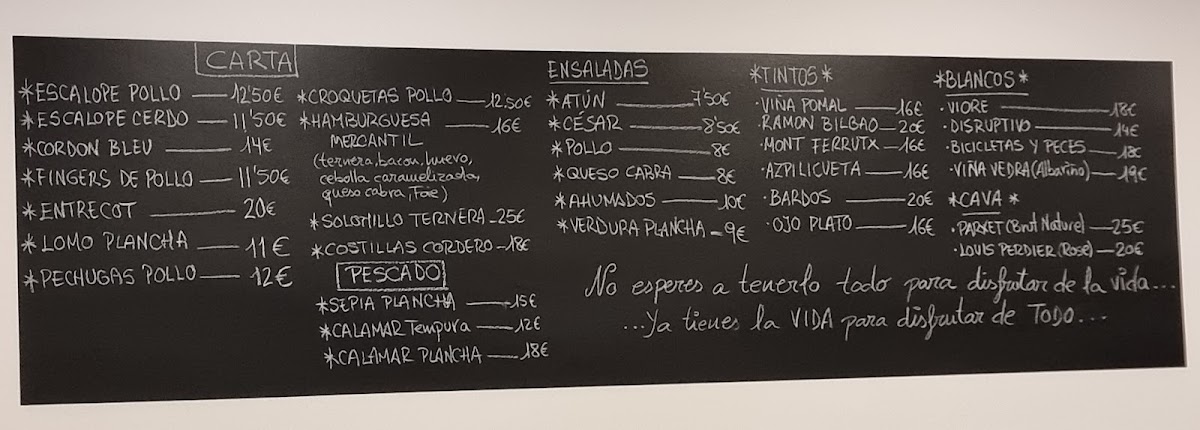 CARTA
*ESCALOPE POLLO — 12'50€
*ESCALOPE CERDO — 11'50€
*CORDON BLEU — 14€
*FINGERS DE POLLO — 11'50€
*ENTRECOT — 20€
*LOMO PLANCHA — 11€
*PECHUGAS POLLO — 12€
*CROQUETAS POLLO — 12'50€
*HAMBURGUESA — 16€
MERCANTIL
(ternera, bacon, huevo,
cebolla caramelizada,
queso cabra, Foie)
*SOLOMILLO TERNERA - 25€
*COSTILLAS CORDERO - 18€
PESCADO
*SEPIA PLANCHA — 15€
*CALAMAR Tempura — 12€
*CALAMAR PLANCHA — 18€
ENSALADAS
*ATÚN — 7'50€
*CÉSAR — 8'50€
*POLLO — 8€
*QUESO CABRA — 8€
*AHUMADOS — 10€
*VERDURA PLANCHA - 9€
*TINTOS*
·VIÑA POMAL — 16€
·RAMON BILBAO — 20€
·MONT FERRUTX — 16€
·AZPILICUETA — 16€
·BARDOS — 20€
·OJO PLATO — 16€
*BLANCOS*
·VIORE — 18€
·DISRUPTIVO — 14€
·BICICLETAS Y PECES — 18€
·VIÑA VEDRA (Albariño) — 19€
*CAVA*
·PARXET (Brut Nature) — 25€
·LOUIS PERDIER (Rosé) — 20€
No esperes a tenerlo todo para disfrutar de la vida...
...Ya tienes la VIDA para disfrutar de TODO...